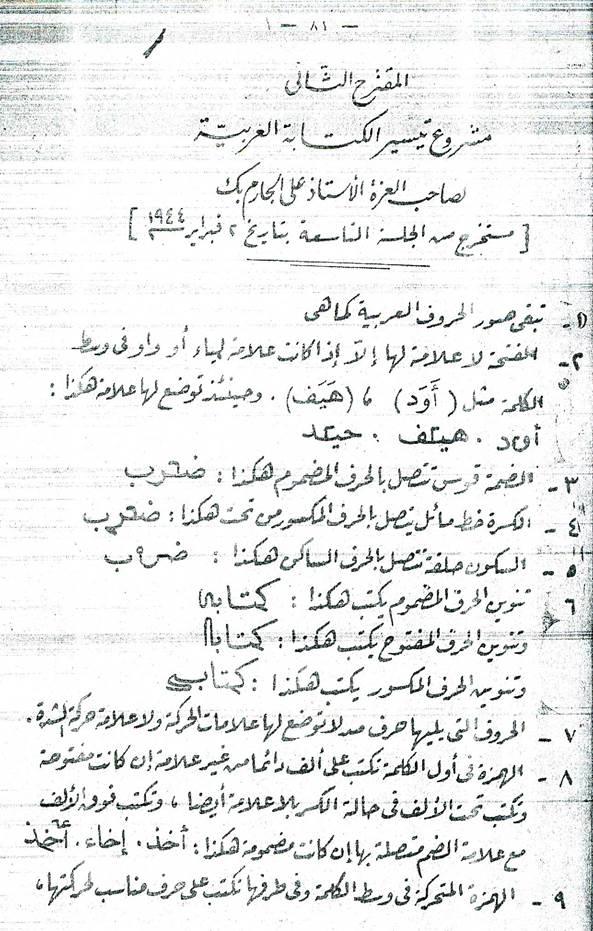 - ٨١ - ١
المقترح الثانى
مشروع تيسير الكتابة العربيّة
لصاحب العزة الأستاذ على الجارم بك
[ مستخرج من الجلسة التاسعة بتاريخ ٢ فبراير ١٩٤٤ ]
١ - تبقى صور الحروف العربية كما هى
٢ - الفتحة لا علامة لها إلّا إذا كانت علامة لياء أو واو فى وسط
الكلمة مثل ( أَوَد ) ، ( هَيَف ) . وحينئذ توضع لها علامة هكذا :
٣ - الضمة قوس تتصل بالحرف المضموم هكذا :
٤ - الكسرة خط مائل يتصل بالحرف المكسور من تحت هكذا :
٥ - السكون حلقة تتصل بالحرف الساكن هكذا :
٦ - تنوين الحرف المضموم يكتب هكذا :
وتنوين الحرف المفتوح يكتب هكذا :
وتنوين الحرف المكسور يكتب هكذا :
٧ - الحروف التى يليها حرف مد لا توضع لها علامات الحركة ولا علامة حركة لشدة .
٨ - الهمزة فى أول الكلمة تكتب على ألف دائما من غير علامة إن كانت مفتوحة
وتكتب تحت الألف فى حالة الكسر بلا علامة أيضا ، وتكتب فوق الألف
مع علامة الضم متصلة بها إن كانت مضمومة هكذا : أخذ . إخاء . أخذ
٩ - الهمزة المتحركة فى وسط الكلمة وفى طرفها تكتب على حرف مناسب لحركتها ،